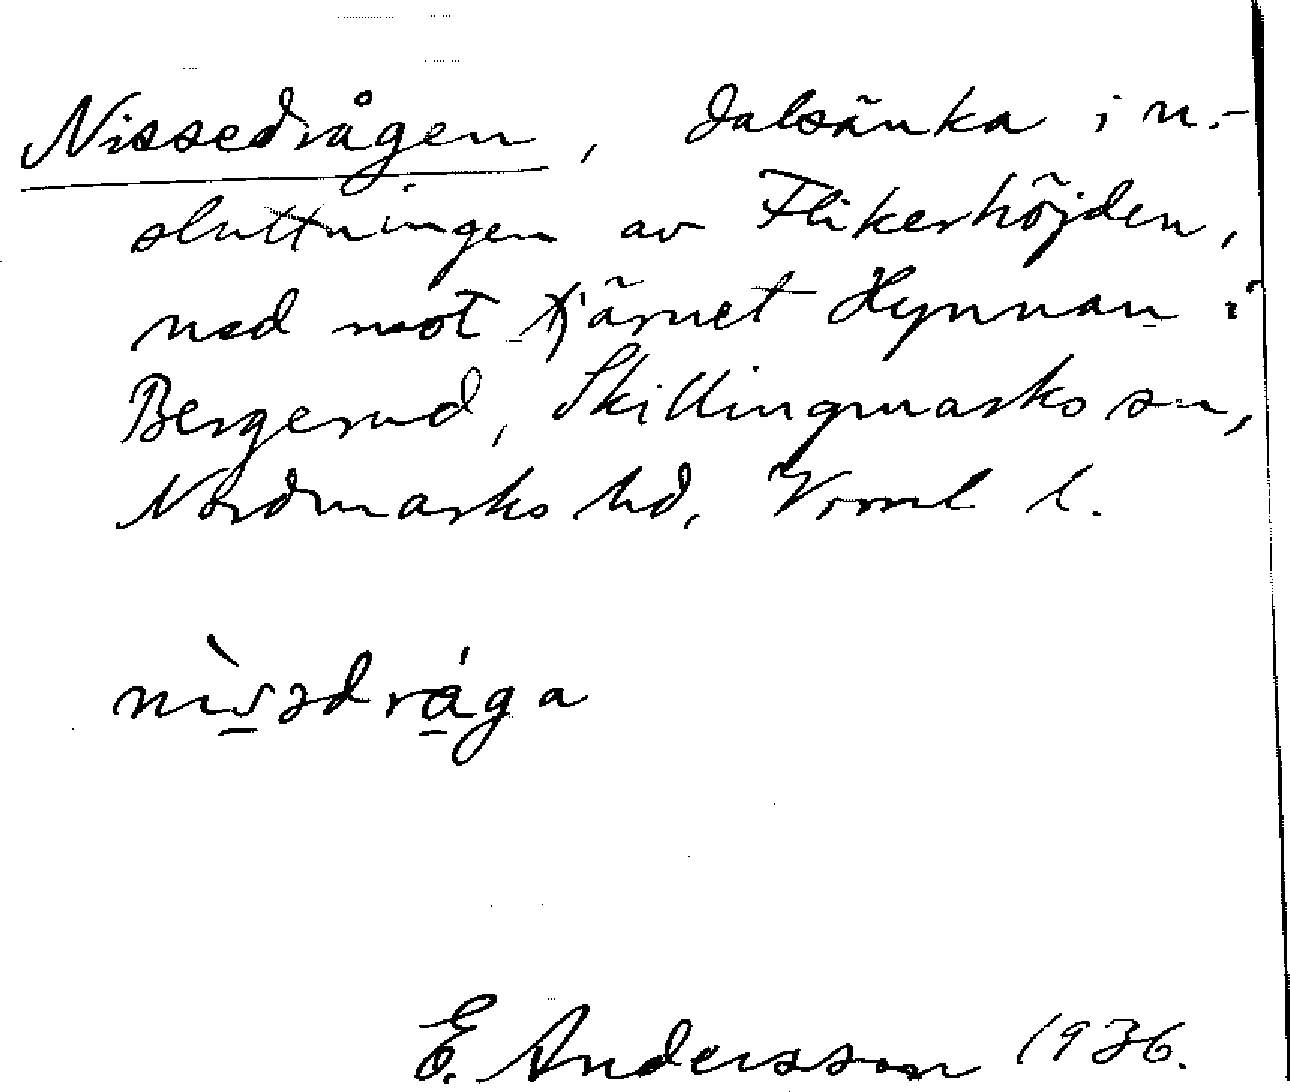 Nissedrågen, dalsänka i n.-
sluttningen av Flikerhöjden,
ned mot tjärnet Hynnan i
Bergerud, Skillingmarks sn,
Nordmarks hd, Vrml l.
nìs̲ədrá̲ga
E. Andersson 1936.